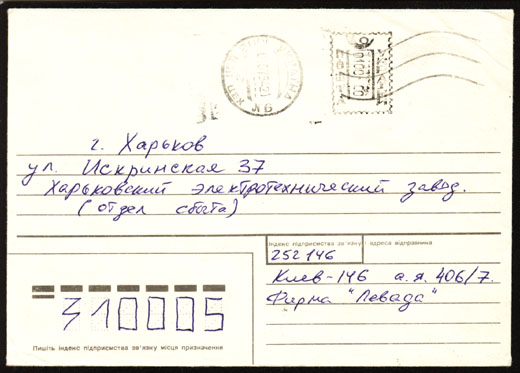 г. Харьков
ул. Искринская 37
Харьковский электротехнический завод.
(отдел сбыта)
Індекс підприємства зв'язку і адреса відправника
252146
Киев-146 а.я. 406/7.
Фирма "Левада"
310005
Пишіть індекс підприємства зв'язку місця призначення